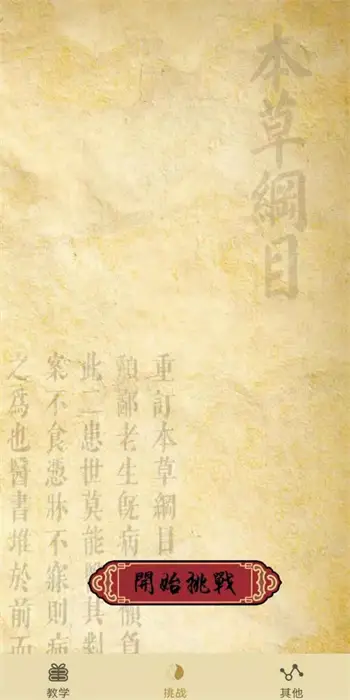 本草綱目
重訂本草綱目
顛鄙老生既病
此二患世莫能其
案不食憑牀不寐則病
之為也醫書堆於前而
開始挑戰
教学
挑战
其他